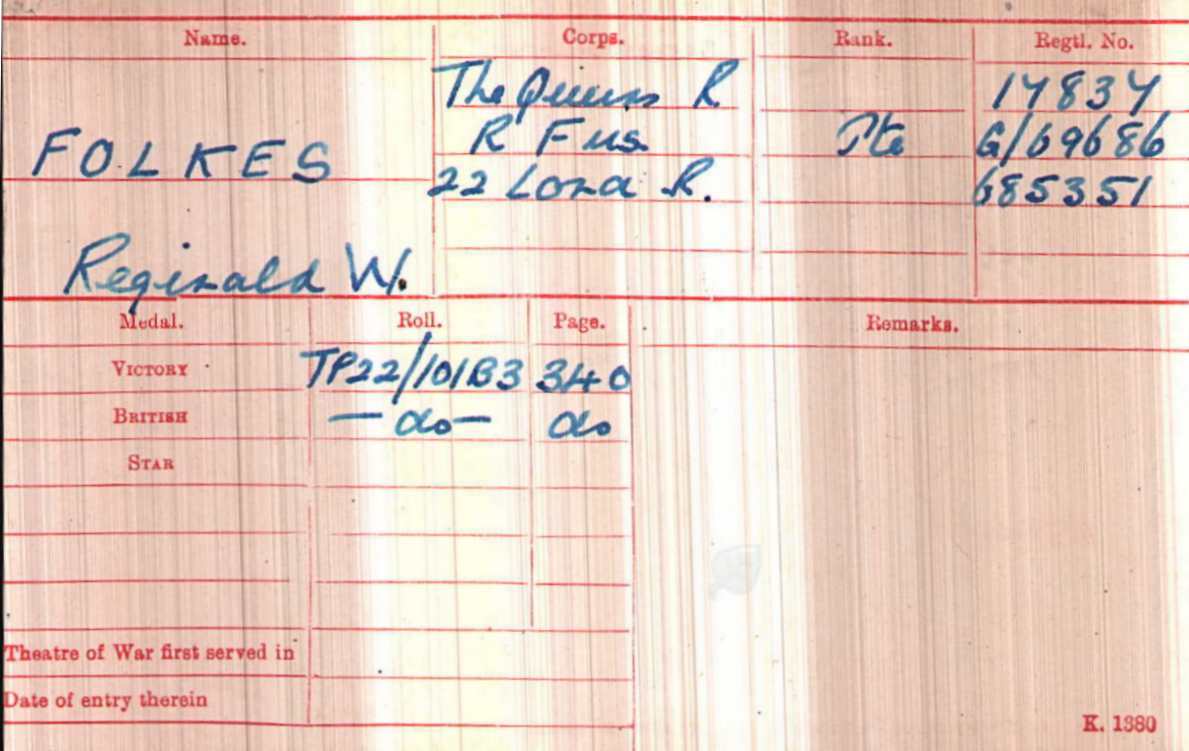 Name. Corps. Rank. Regtl. No.
The Queens R 17837
R Fus. Pte G/69686
FOLKES
22 Lond R. 685351
Reginald W.
Medal. Roll. Page. Remarks.
VICTORY TP22/101B3 340
BRITISH —do— do
STAR
Theatre of War first served in
Date of entry therein
K. 1380